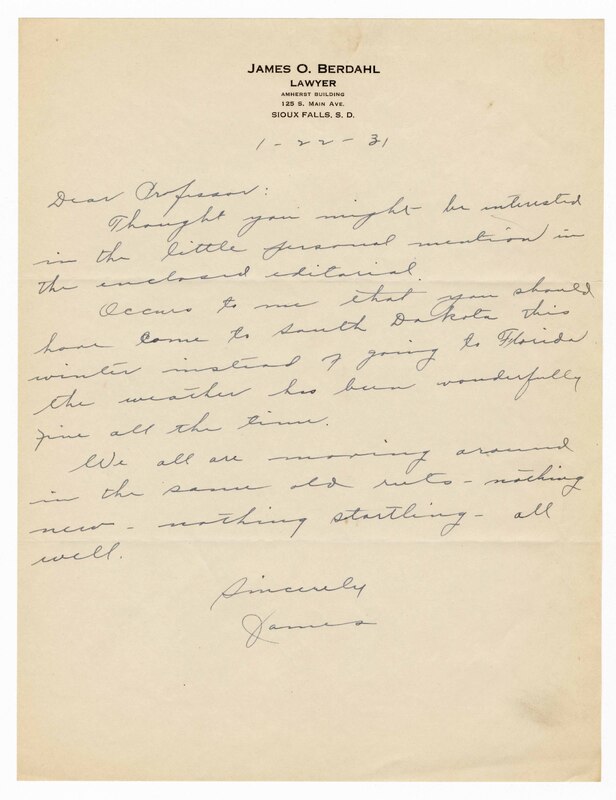 JAMES O. BERDAHL
LAWYER
AMHERST BUILDING
125 S. MAIN AVE.
SIOUX FALLS, S. D.
1-22-31
Dear Professor:
Thought you might be interested
in the little personal mention in
the enclosed editorial.
Occurs to me that you should
have come to South Dakota this
winter instead of going to Florida
the weather has been wonderfully
fine all the time.
We all are moving around
in the same old ruts - nothing
new - nothing startling - all
well.
Sincerely
James